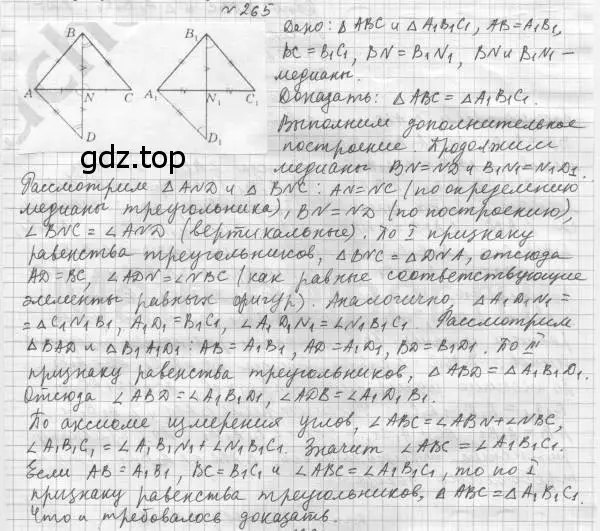 №265
Дано: △ABC и △A₁B₁C₁, AB=A₁B₁,
BC=B₁C₁, BN=B₁N₁, BN и B₁N₁ –
медианы.
Доказать: △ABC=△A₁B₁C₁.
Выполним дополнительное
построение. Продолжим
медианы BN=ND и B₁N₁=N₁D₁.
B
A N C
D
B₁
A₁ N₁ C₁
D₁
gdz.top
Рассмотрим △AND и △BNC: AN=NC (по определению
медианы треугольника), BN=ND (по построению),
∠BNC=∠AND (вертикальные). По I признаку
равенства треугольников, △BNC=△DNA, отсюда
AD=BC, ∠ADN=∠NBC (как равные соответствующие
элементы равных фигур). Аналогично, △A₁D₁N₁=
=△C₁N₁B₁, A₁D₁=B₁C₁, ∠A₁D₁N₁=∠N₁B₁C₁. Рассмотрим
△BAD и △B₁A₁D₁: AB=A₁B₁, AD=A₁D₁, BD=B₁D₁. По III
признаку равенства треугольников, △ABD=△A₁B₁D₁.
Отсюда ∠ABD=∠A₁B₁D₁, ∠ADB=∠A₁D₁B₁.
По аксиоме измерения углов, ∠ABC=∠ABN+∠NBC,
∠A₁B₁C₁=∠A₁B₁N₁+∠N₁B₁C₁. Значит ∠ABC=∠A₁B₁C₁.
Если AB=A₁B₁, BC=B₁C₁ и ∠ABC=∠A₁B₁C₁, то по I
признаку равенства треугольников, △ABC=△A₁B₁C₁.
Что и требовалось доказать.